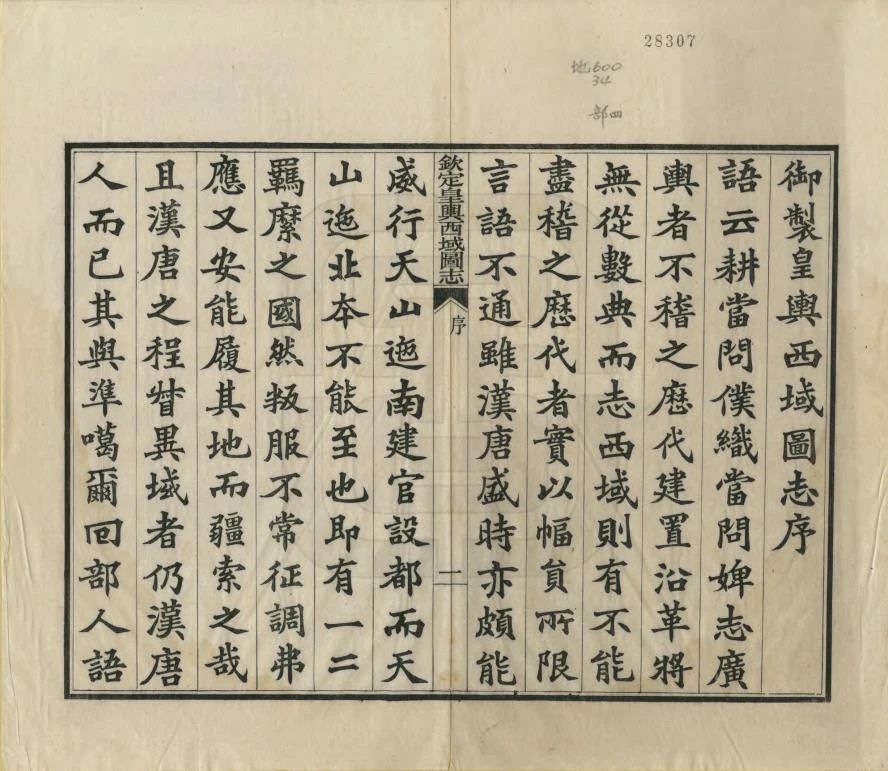 28307
地600
34
部四
御製皇輿西域圖志序
語云耕當問僕織當問婢志廣
輿者不稽之歷代建置沿革將
無從數典而志西域則有不能
盡稽之歷代者實以幅員所限
言語不通雖漢唐盛時亦頗能
欽定皇輿西域圖志
序
一
威行天山迤南建官設都而天
山迤北夲不能至也即有一二
羈縻之國然叛服不常征調弗
應又安能履其地而疆索之哉
且漢唐之程督異域者仍漢唐
人而已其與準噶爾回部人語